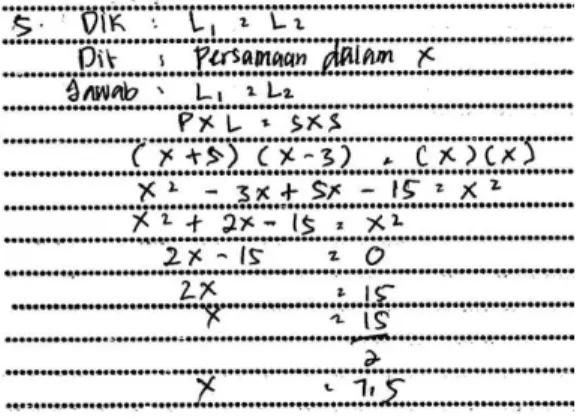 5. Dik : L1 = L2
Dit : Persamaan dalam x
Jawab : L1 = L2
P x L = S x S
(x + 5) (x - 3) = (x) (x)
x² - 3x + 5x - 15 = x²
x² + 2x - 15 = x²
2x - 15 = 0
2x = 15
x = 15
2
x = 7,5